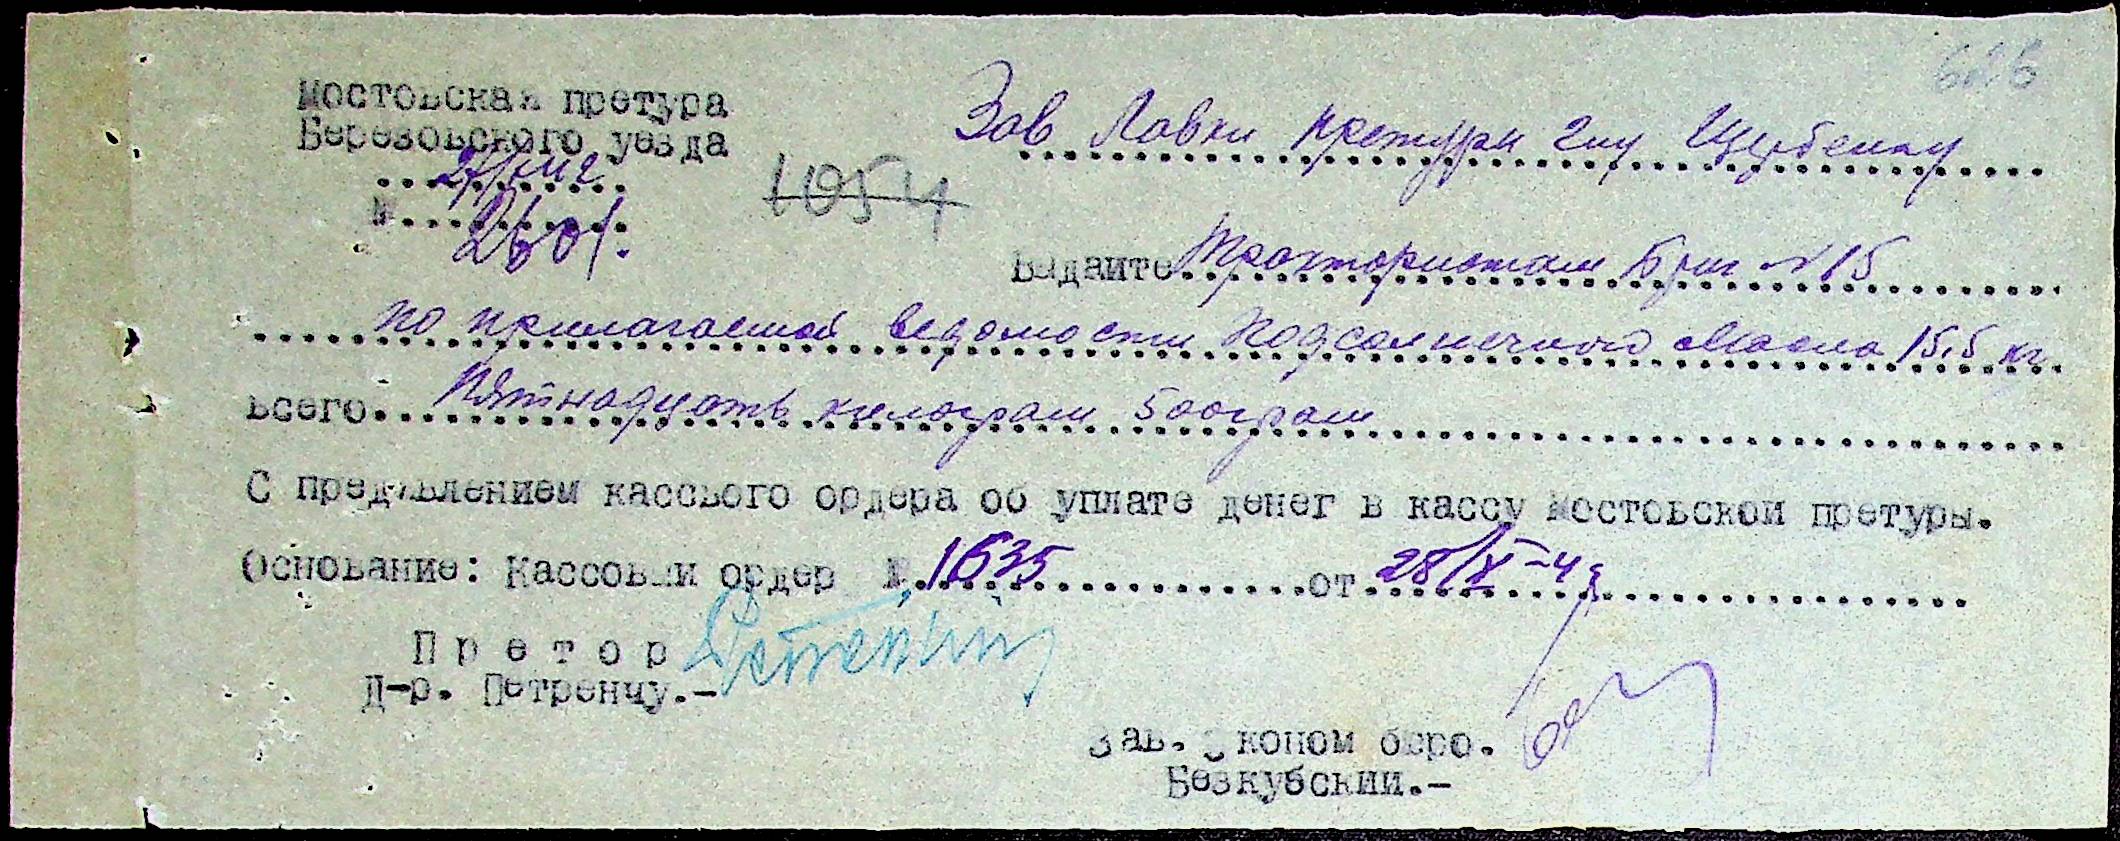 626
Мостовская претура
Березовского уезда
Зав Лавки претуры г-ну Щербенку
1054
№ 2601.
Выдайте Трактористам Бриг № 15
по прилагаемой ведомости Подсолнечного масла 15,5 кг.
Всего Пятнадцать килограм 500 грам
С предявлением кассвого ордера об уплате денег в кассу Мостовской претуры.
Основание: Кассовый ордер № 1635 от 28/X-4
Претор
Д-р. Петренчу.-
Зав. Эконом бюро.
Безкубский.-